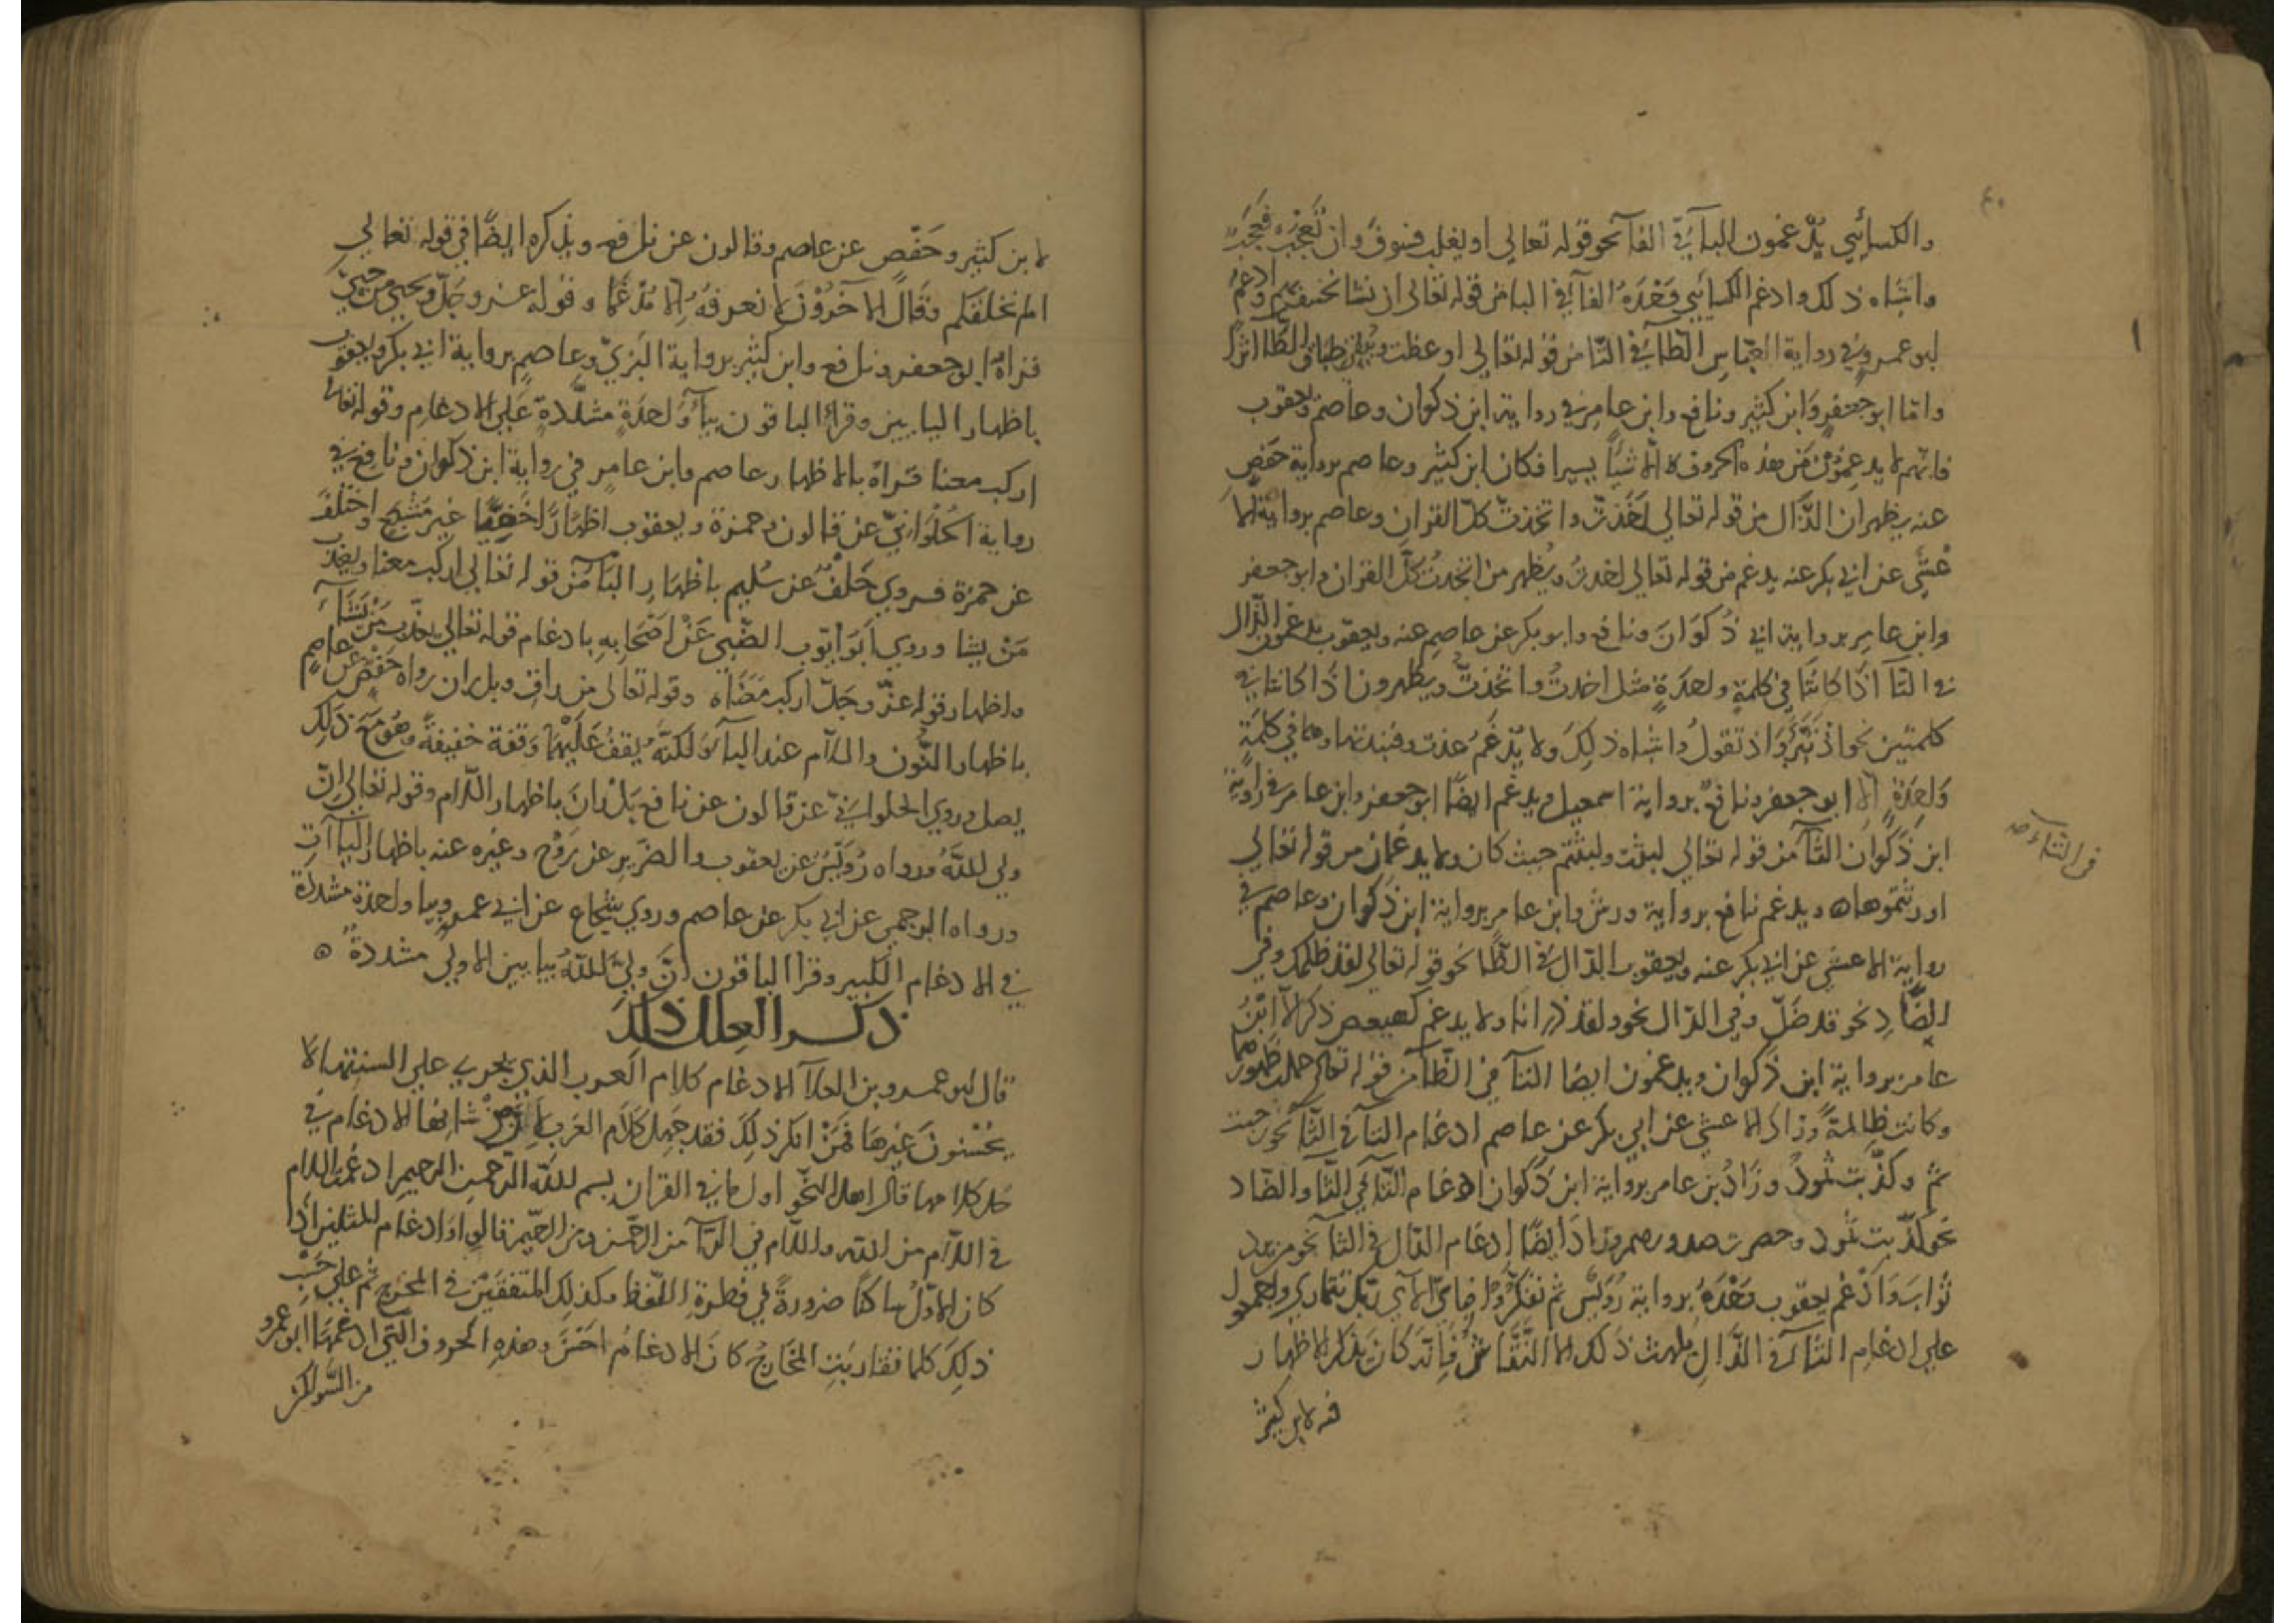 والكسائي يدغمون الباء في الفاء نحو قوله تعالى او يغلب فسوف وان تعجب فعجب
واشباه ذلك وادغم الكسائي وحده الفاء في الباء من قوله تعالى ان نشا نخسف بهم وادغم
ابو عمرو في رواية العباس الظا في التا من قوله تعالى اوعظت ويبقى اطباق الظا اثرا
واما ابو جعفر وابن كثير ونافع وابن عامر في رواية ابن ذكوان وعاصم ويعقوب
فانهم لا يدغمون من هذه الحروف الا شيا يسيرا فكان ابن كثير وعاصم برواية حفص
عنه يظهران الذال من قوله تعالى اخذت واتخذت كل القران وعاصم برواية الا
عشى عن ابي بكر عنه يدغم من قوله تعالى اخذت ويظهر من اتخذت كل القران وابو جعفر
وابن عامر برواية ابن ذكوان ونافع وابو بكر عن عاصم عنه ويعقوب يدغمون الذال
في التا اذا كانتا في كلمة واحدة مثل اخذت واتخذت ويظهرون اذا كانتا في
كلمتين نحو اذ تبرا واذ تقول واشباه ذلك ولا يدغم عذت وفنبذتها وهما في كلمة
واحدة الا ابو جعفر ونافع برواية اسمعيل ويدغم ايضا ابو جعفر وابن عامر في رواية
ابن ذكوان الثا من قوله تعالى لبثت ولبثتم حيث كان ولا يدغمان من قوله تعالى
في التاء صح
اورثتموها ه ويدغم نافع برواية ورش وابن عامر برواية ابن ذكوان وعاصم في
رواية الاعشى عن ابي بكر عنه ويعقوب الدال في الظا نحو قوله تعالى لقد ظلمك وفي
الضاد نحو قد ضل وفي الذال نحو ولقد ذرانا ولا يدغم كهيعص ذكر الا ابن
عامر برواية ابن ذكوان ويدغمون ايضا التا في الظا من قوله تعالى حملت ظهورهما
وكانت ظالمة وزاد الاعشى عن ابي بكر عن عاصم ادغام التا في الثا نحو رحبت
ثم وكذبت ثمود وزاد بن عامر برواية ابن ذكوان ادغام التا في الثا والصاد
نحو كذبت ثمود وحصرت صدورهم وزاد ايضا ادغام الدال في الثا نحو من يرد
ثواب وادغم يعقوب وحده برواية رويس ثم تفكروا فباي الاي ربك تتمارى واجمعوا
على ادغام الثا في الذال يلهث ذلك الا النقاش فانه كان يذكر الاظهار
فيه لابن كثير
لابن كثير وحفص عن عاصم وقالون عن نافع ويذكره ايضا في قوله تعالى
الم نخلقكم وقال الاخرون لا نعرفه الا مدغما وقوله عز وجل ويحيى من حيي
قراه ابو جعفر ونافع وابن كثير برواية البزي وعاصم برواية ابي بكر ويعقوب
باظهار اليايين وقرا الباقون بياء واحدة مشددة على الادغام وقوله تعالى
اركب معنا قراه بالاظهار عاصم وابن عامر في رواية ابن ذكوان ونافع في
رواية الحلواني عن قالون وحمزة ويعقوب اظهارا خفيفا غير مشبع واختلف
عن حمزة فروى خلف عن سليم باظهار الباء من قوله تعالى اركب معنا ويعذب
من يشا وروى ابو ايوب الضبي عن اصحابه بادغام قوله تعالى يعذب من يشاء
واظهار قوله عز وجل اركب معنا ه وقوله تعالى من راق وبل ران رواه حفص عن عاصم
باظهار النون واللام عند الياء لكنه يقف عليهما وقفة خفيفة وهو مع ذلك
يصل وروى الحلواني عن قالون عن نافع بل ران باظهار اللام وقوله تعالى ان
ولي الله ورواه رويس عن يعقوب والضرير عن روح وغيره عنه باظهار الياآت
ورواه البرجمي عن ابي بكر عن عاصم وروى شجاع عن ابي عمرو بيا واحدة مشددة
في الادغام الكبير وقرا الباقون ان ولي الله بيا بين الاولى مشددة ه
ذكر العلل لذلك
قال ابو عمرو بن العلاء الادغام كلام العرب الذي يجري على السنتها لا
يحسنون غيرها فمن انكر ذلك فقد جهل كلام العرب شانها الادغام في
كل كلامها قال اهل النحو اول ما في القران بسم الله الرحمن الرحيم ادغمت اللام
في اللام من الله واللام في الرا من الرحمن ومن الرحيم قالوا وادغام المثلين اذا
كان الاول ساكنا ضرورة في فطرة اللفظ وكذلك المتفقين في المخرج ثم على حسب
ذلك كلما تقاربت المخارج كان الادغام احسن وهذه الحروف التي ادغمها ابو عمرو
من السواكن